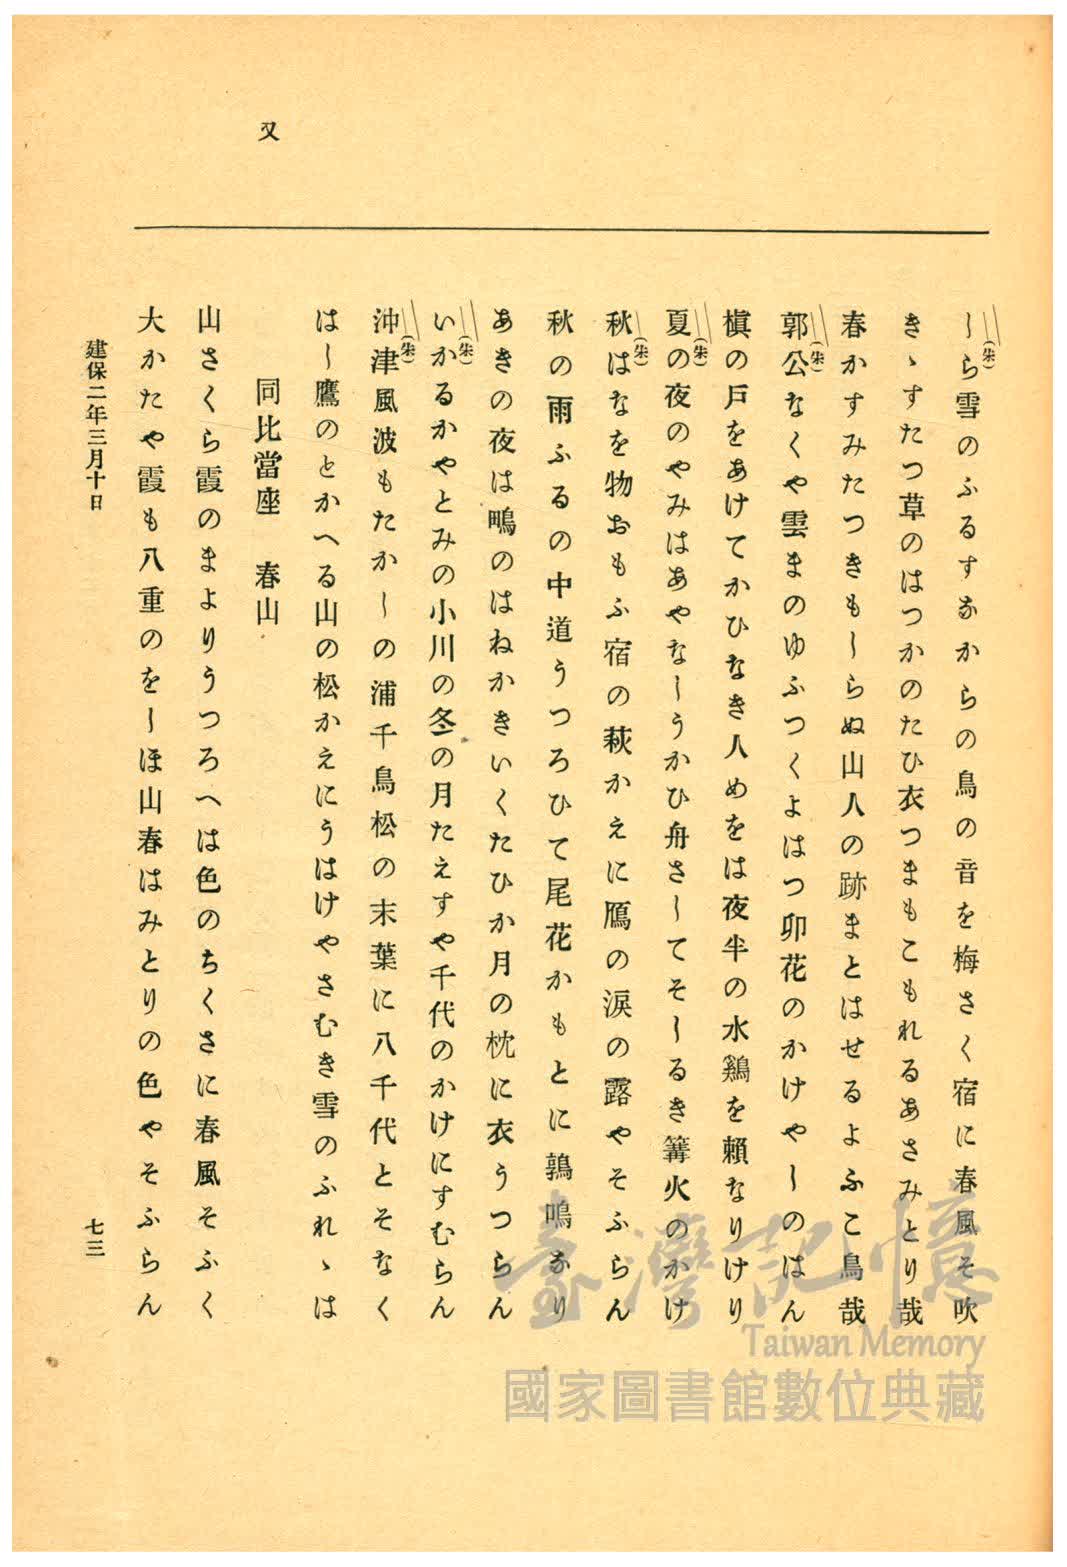 又
〳〵(朱)
しら雪のふるすなからの鳥の音を梅さく宿に春風そ吹
きゝすたつ草のはつかのたひ衣つまもこもれるあさみとり哉
春かすみたつきもしらぬ山人の跡まとはせるよふこ鳥哉
(朱)
郭公なくや雲まのゆふつくよはつ卯花のかけやしのはん
槇の戸をあけてかひなき人めをは夜半の水鷄を賴なりけり
(朱)
夏の夜のやみはあやなしうかひ舟さしてそしるき篝火のかけ
(朱)
秋はなを物おもふ宿の萩かえに鴈の淚の露やそふらん
秋の雨ふるの中道うつろひて尾花かもとに鶉鳴なり
あきの夜は鴫のはねかきいくたひか月の枕に衣うつらん
(朱)
いかるかやとみの小川の冬の月たえすや千代のかけにすむらん
(朱)
沖津風波もたかしの浦千鳥松の末葉に八千代とそなく
はし鷹のとかへる山の松かえにうはけやさむき雪のふれゝは
同比當座　春山
山さくら霞のまよりうつろへは色のちくさに春風そふく
大かたや霞も八重のをしほ山春はみとりの色やそふらん
建保二年三月十日
七三
臺灣記憶
Taiwan Memory
國家圖書館數位典藏